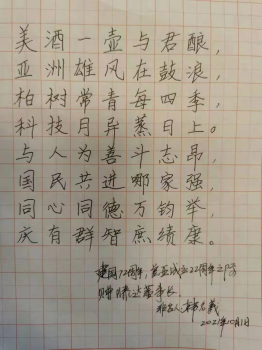 美酒一壶与君酿，
亚洲雄风在鼓浪，
柏树常青每四季，
科技月异蒸日上。
与人为善斗志昂，
国民共进哪家强，
同心同德万钧举，
庆有群智庶绩康。
建国72周年，成立22周年之际
赠 达董事长
2021年10月1日